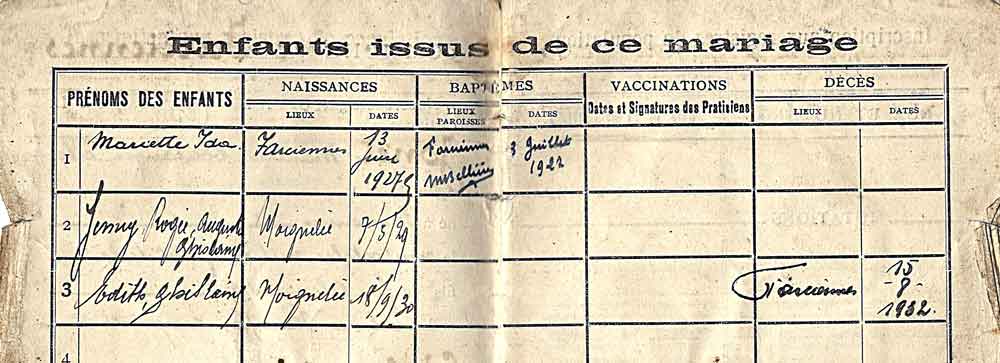 Enfants issus de ce mariage
PRÉNOMS DES ENFANTS NAISSANCES BAPTEMES VACCINATIONS DÉCÈS
LIEUX DATES LIEUX PAROISSES DATES Dates et Signatures des Pratisiens LIEUX DATES
1 Mariette Ida. Farciennes 13 Juin 1927 Farciennes 3 Juillet 1927
2 Jenny, Rogée, August Ghislaine Moignelée 7/5/29
3 Edith, Ghislaine Moignelée 18/9/30 Farciennes 15 -8- 1932.
4